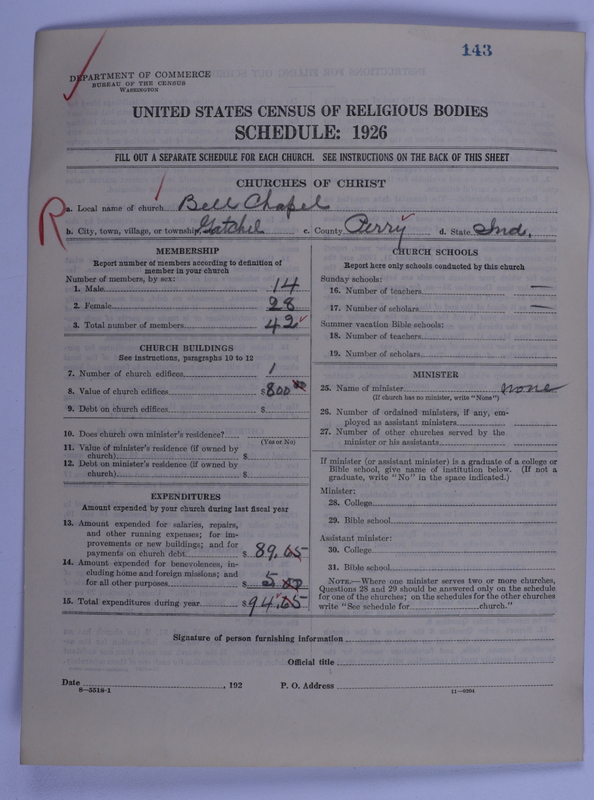 143
DEPARTMENT OF COMMERCE
BUREAU OF THE CENSUS
WASHINGTON
UNITED STATES CENSUS OF RELIGIOUS BODIES
SCHEDULE: 1926
FILL OUT A SEPARATE SCHEDULE FOR EACH CHURCH. SEE INSTRUCTIONS ON THE BACK OF THIS SHEET
CHURCHES OF CHRIST
R
a. Local name of church Bell Chapel
b. City, town, village, or township Gatchel c. County Perry d. State Ind.
MEMBERSHIP
Report number of members according to definition of
member in your church
Number of members, by sex:
1. Male 14
2. Female 28
3. Total number of members 42
CHURCH BUILDINGS
See instructions, paragraphs 10 to 12
7. Number of church edifices 1
8. Value of church edifices $800 00
9. Debt on church edifices $
10. Does church own minister's residence?
(Yes or No)
11. Value of minister's residence (if owned by
church) $
12. Debt on minister's residence (if owned by
church) $
EXPENDITURES
Amount expended by your church during last fiscal year
13. Amount expended for salaries, repairs,
and other running expenses; for im-
provements or new buildings; and for
payments on church debt $ 89.65
14. Amount expended for benevolences, in-
cluding home and foreign missions; and
for all other purposes $ 5.00
15. Total expenditures during year $ 94.65
CHURCH SCHOOLS
Report here only schools conducted by this church
Sunday schools:
16. Number of teachers —
17. Number of scholars —
Summer vacation Bible schools:
18. Number of teachers
19. Number of scholars
MINISTER
25. Name of minister none
(If church has no minister, write "None")
26. Number of ordained ministers, if any, em-
ployed as assistant ministers
27. Number of other churches served by the
minister or his assistants
If minister (or assistant minister) is a graduate of a college or
Bible school, give name of institution below. (If not a
graduate, write "No" in the space indicated.)
Minister:
28. College
29. Bible school
Assistant minister:
30. College
31. Bible school
NOTE.—Where one minister serves two or more churches,
Questions 28 and 29 should be answered only on the schedule
for one of the churches; on the schedules for the other churches
write "See schedule for church."
Signature of person furnishing information
Official title
Date , 192 P. O. Address
8—5518-1 11—9094